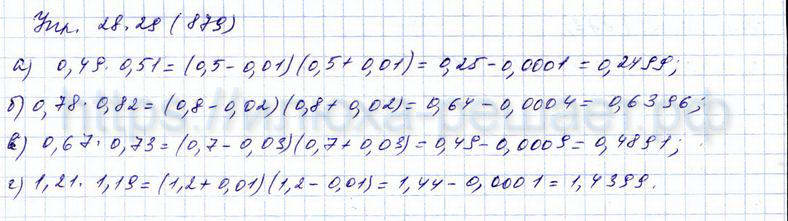 Упр. 28.29 (879)
а) 0,49 · 0,51 = (0,5 - 0,01)(0,5 + 0,01) = 0,25 - 0,0001 = 0,2499;
б) 0,78 · 0,82 = (0,8 - 0,02)(0,8 + 0,02) = 0,64 - 0,0004 = 0,6396;
в) 0,67 · 0,73 = (0,7 - 0,03)(0,7 + 0,03) = 0,49 - 0,0009 = 0,4891;
г) 1,21 · 1,19 = (1,2 + 0,01)(1,2 - 0,01) = 1,44 - 0,0001 = 1,4399.